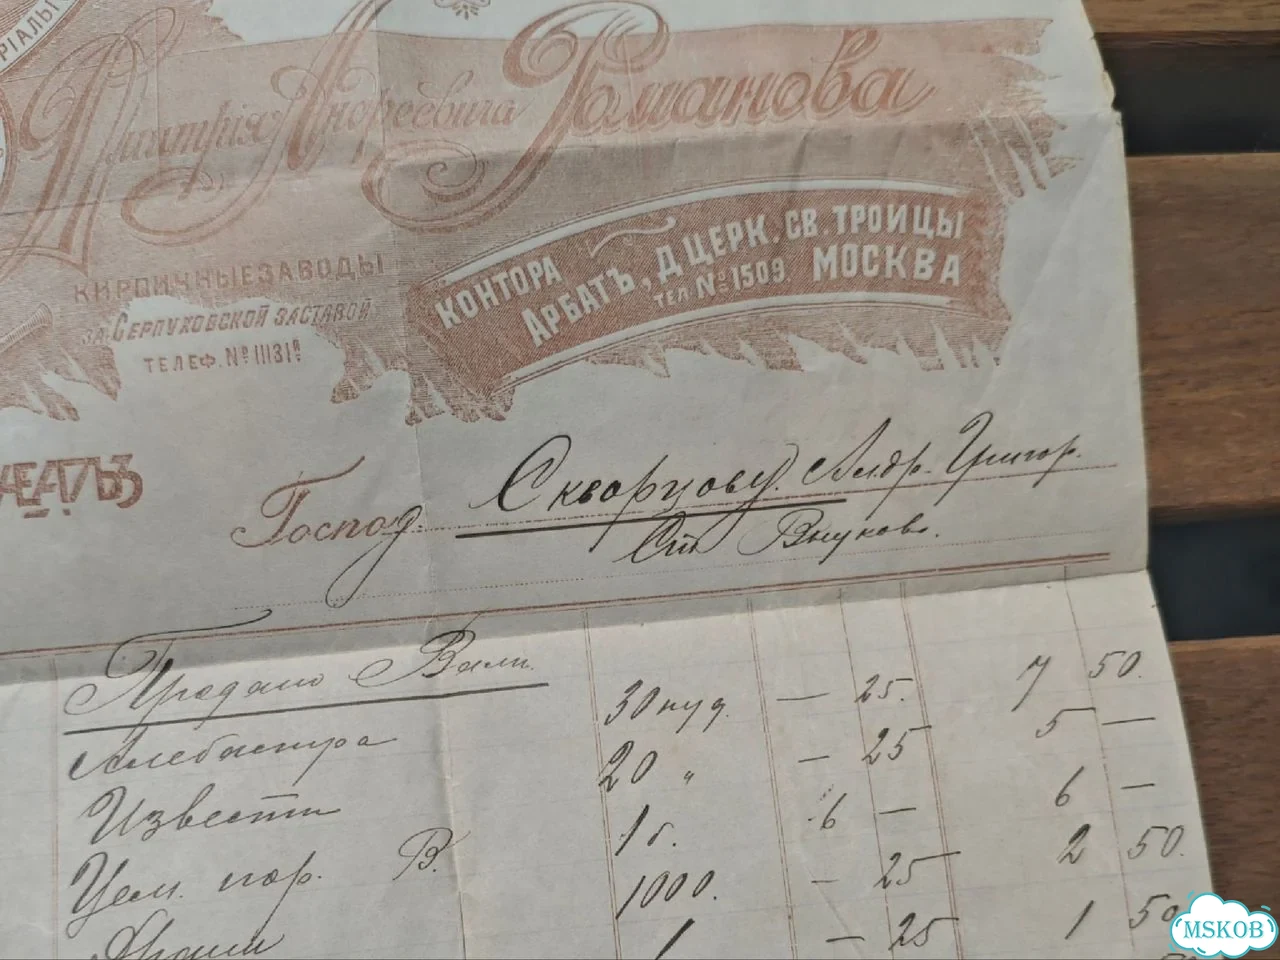 РІАЛЫ
Дмитрія Андреевича Романова
КИРПИЧНЫЕ ЗАВОДЫ
ЗА СЕРПУХОВСКОЙ ЗАСТАВОЙ
ТЕЛЕФ. № 11131й
КОНТОРА
АРБАТЪ, Д ЦЕРК. СВ. ТРОИЦЫ
ТЕЛ № 1509. МОСКВА
Господ. Скворцову. Алдр. Григор.
Ст Внуково.
Продано Вами
Алебастра 30 пуд. — 25. 7 50.
Извести 20 " — 25 5 —
Цем. пор. В. 1 б. 6 — 6 —
1000. — 25 2 50.
1 — 25 1 50
MSKOB